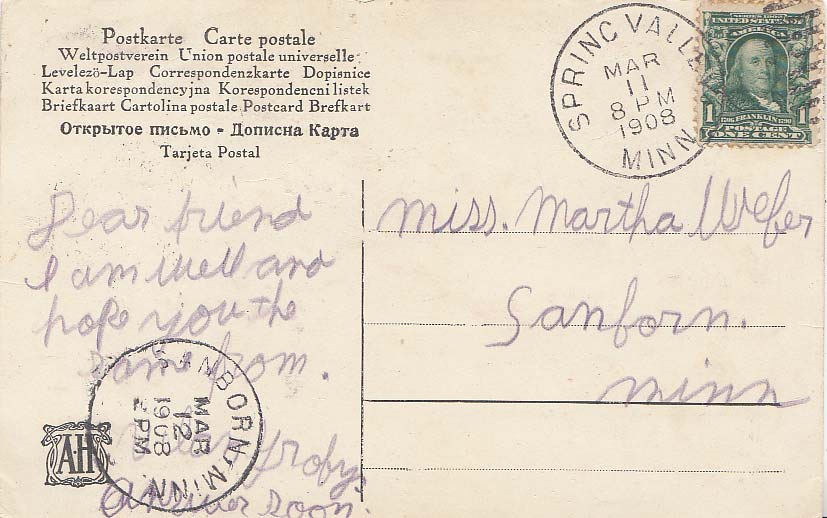 Postkarte Carte postale
Weltpostverein Union postale universelle
Levelezö-Lap Correspondenzkarte Dopisnice
Karta korespondencyjna Korespondencni listek
Briefkaart Cartolina postale Postcard Brefkart
Открытое письмо - Дописна Карта
Tarjeta Postal
SPRING VALLEY
MAR
11
8 PM
1908
MINN
SERIES 1902
UNITED STATES OF
AMERICA
1706 FRANKLIN 1790
POSTAGE
1 ONE CENT 1
Dear friend
I am well and
hope you the
same from.
Answer soon.
miss. Martha
Sanforn.
minn
SANBORN MINN
MAR
12
1908
2 PM
AH